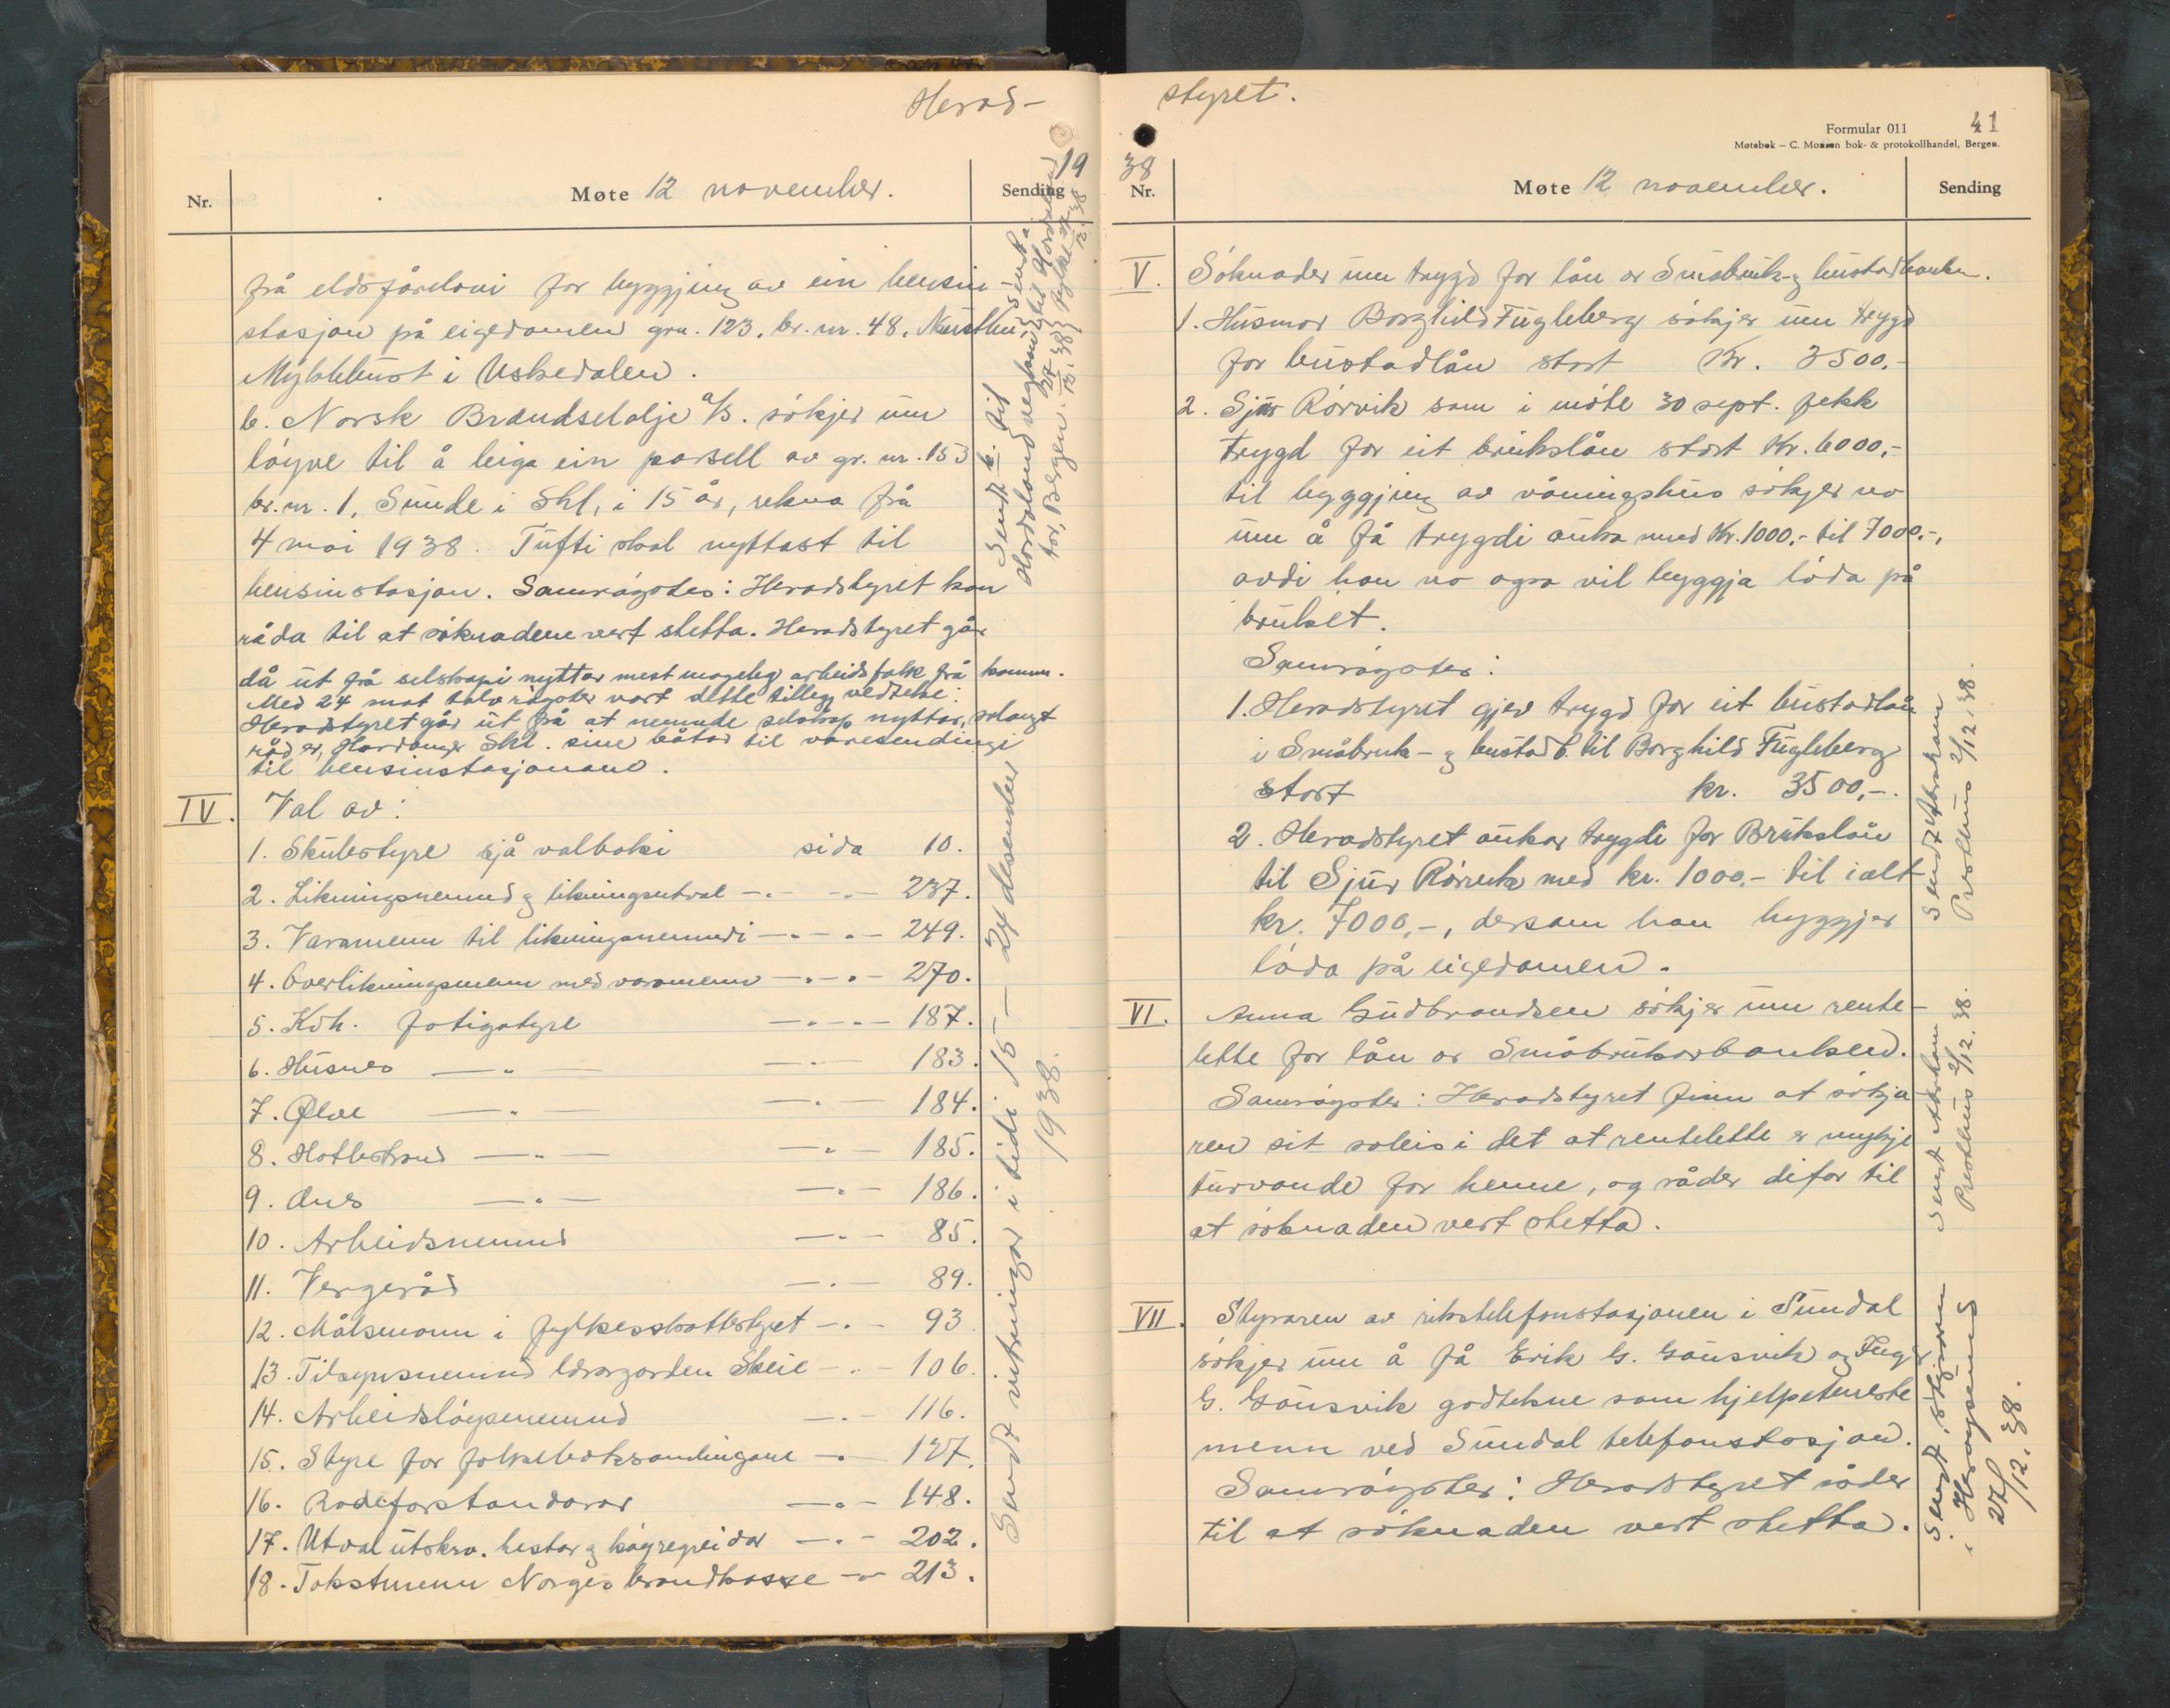 Herad-
19
Nr.
Møte 12 november.
Sending
frå eldsfårslovi for byggjing av ein bensin
stasjon på eigedomen grn. 123, br. nr. 48, Naustbu,
Myklebust i Uskedalen.
b. Norsk Brændselolje a/s. søkjer um
løyve til å leiga ein parsell av gr. nr. 153
br. nr. 1, Sunde i Skl, i 15 år, rekna frå
4 mai 1938. Tufti skal nyttast til
bensinstasjon. Samrøystes: Heradstyret kan
råda til at søknadene vert stetta. Heradstyret går
då ut frå selskapi nyttar mest mogeleg arbeidsfolk frå komm.
Med 24 mot tolv røyster vart dette tillegg vedteke:
Heradstyret går ut frå at nemnde selskap nyttar, solangt
råd er, Hardanger Skl. sine båtar til varesendingi
til bensinstasjonane.
IV. Val av:
1. Skulestyre sjå valboki sida 10.
2. Likningsnemnd og likningsutval -.- -.- 237.
3. Varamenn til likningsnemndi -.- -.- 249.
4. Overlikningsmenn med varamenn -.- -.- 270.
5. Kvh. fatigstyre -.- -.- 187.
6. Husnes -.- -.- 183.
7. Ølve -.- -.- 184.
8. Hatlestrand -.- -.- 185.
9. Ænes -.- -.- 186.
10. Arbeidsnemnd -.- 85.
11. Vergeråd -.- 89.
12. Målsmann i fylkesskattestyret -.- 93
13. Tilsynsnemnd lærargarden Skeie -.- 106.
14. Arbeidsløysenemnd -.- 116.
15. Styre for folkeboksamlingane -.- 127.
16. Rodeforstandarar -.- 148.
17. Utval utskrv. hestar og køyregreidor -.- 202.
18. Takstmenn Norges brandkasse -.- 213.
Sendt b. til
Hordaland vegkon
tor, Bergen.
Sendt utskriningar i tidi 15 - 24 desember
1938.
styret.
38
Formular 011
41
Møtebok - C. Monsen bok- & protokollhandel, Bergen.
Nr.
Møte 12 november.
Sending
V. Søknader um trygd for lån av Småbruk- og bustadbanken.
1. Husmor Borghild Fugleberg søkjer um trygd
for bustadlån stort Kr. 3500.-
2. Sjur Rørvik som i møte 30 sept. fekk
trygd for eit brukslån stort Kr. 6000,-
til byggjing av våningshus søkjer no
um å få trygdi auka med Kr. 1000.- til 7000.-,
avdi han no ogso vil byggja løda på
bruket.
Samrøystes:
1. Heradstyret gjev trygd for eit bustadlån
i Småbruk- og bustadb. til Borghild Fugleberg
stort kr. 3500,-.
2. Heradstyret aukar trygdi for Brukslån
til Sjur Rørvik med kr. 1000.- til ialt
kr. 7000,-, dersom han byggjer
løda på eigedomen.
VI. Anna Gudbrandsen søkjer um rente-
lette for lån av Småbrukarbanken.
Samrøystes: Heradstyret finn at søkja
ren sit soleis i det at rentelette er mykje
turvande for henne, og råder difor til
at søknaden vert stetta.
VII. Styraren av rikstelefonstasjonen i Sundal
søkjer um å få Erik G. Gausvik og Inge
G. Gausvik godtekne som hjelpeteneste
menn ved Sundal telefonstasjon.
Samrøystes: Heradstyret råder
til at søknaden vert stetta.
Sendt Abraham
Presthus 2/12.38.
Sendt Abraham
Presthus 2/12.38.
Sendt styraren
i Herøysund
27/12.38.